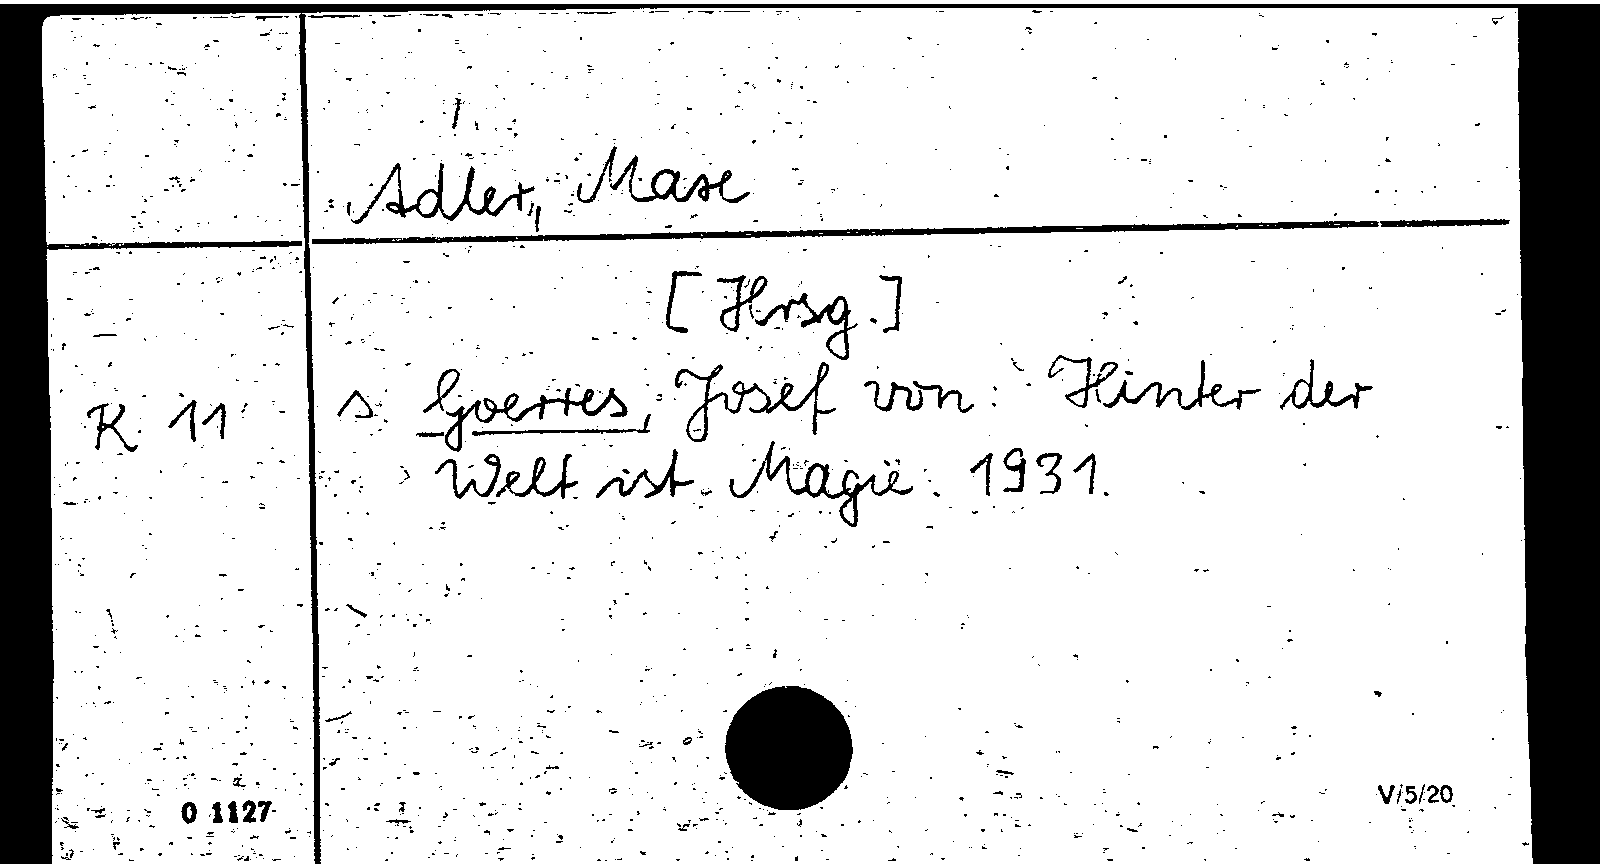 Adler, Mase
[Hrsg.]
K 11 s Goerres, Josef von: Hinter der
Welt ist Magie. 1931.
O 1127
V/5/20